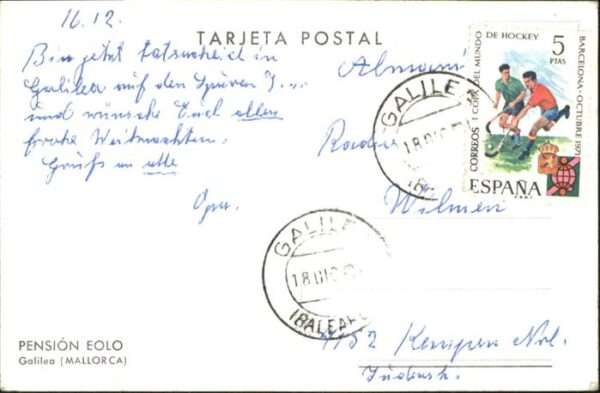 TARJETA POSTAL
16.12.
Bin jetzt tatsächlich in
Galilea auf den Spuren J...
und wünsche Euch allen
frohe Weihnachten.
Gruß an alle
Opa.
Wilmen
4152 Kempen Nrh.
PENSIÓN EOLO
Galilea (MALLORCA)
CORREOS I COPA DEL MUNDO DE HOCKEY
BARCELONA-OCTUBRE 1971
5
PTAS
ESPAÑA
GALILE
18 DIC
GALILE
18 DIC
(BALEARE